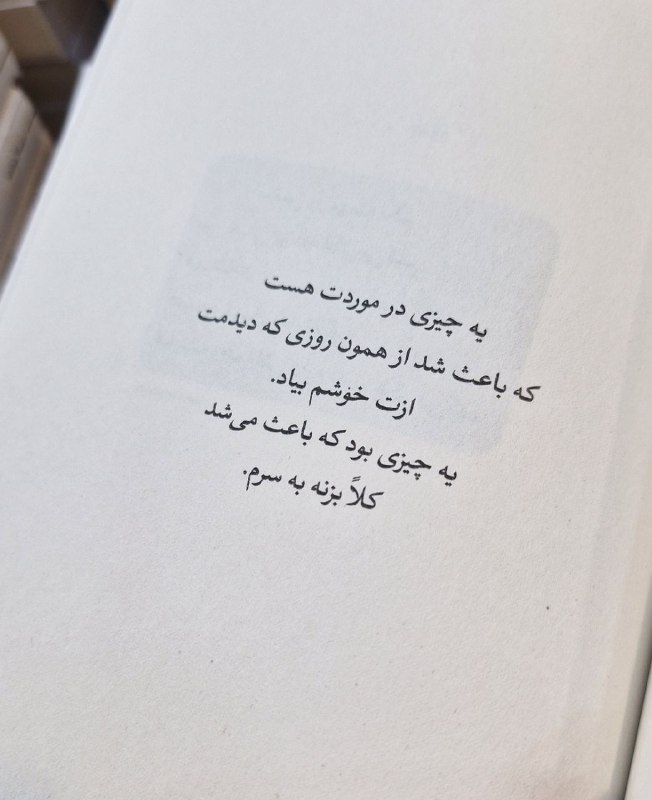 یه چیزی در موردت هست
که باعث شد از همون روزی که دیدمت
ازت خوشم بیاد.
یه چیزی بود که باعث می‌شد
کلاً بزنه به سرم.